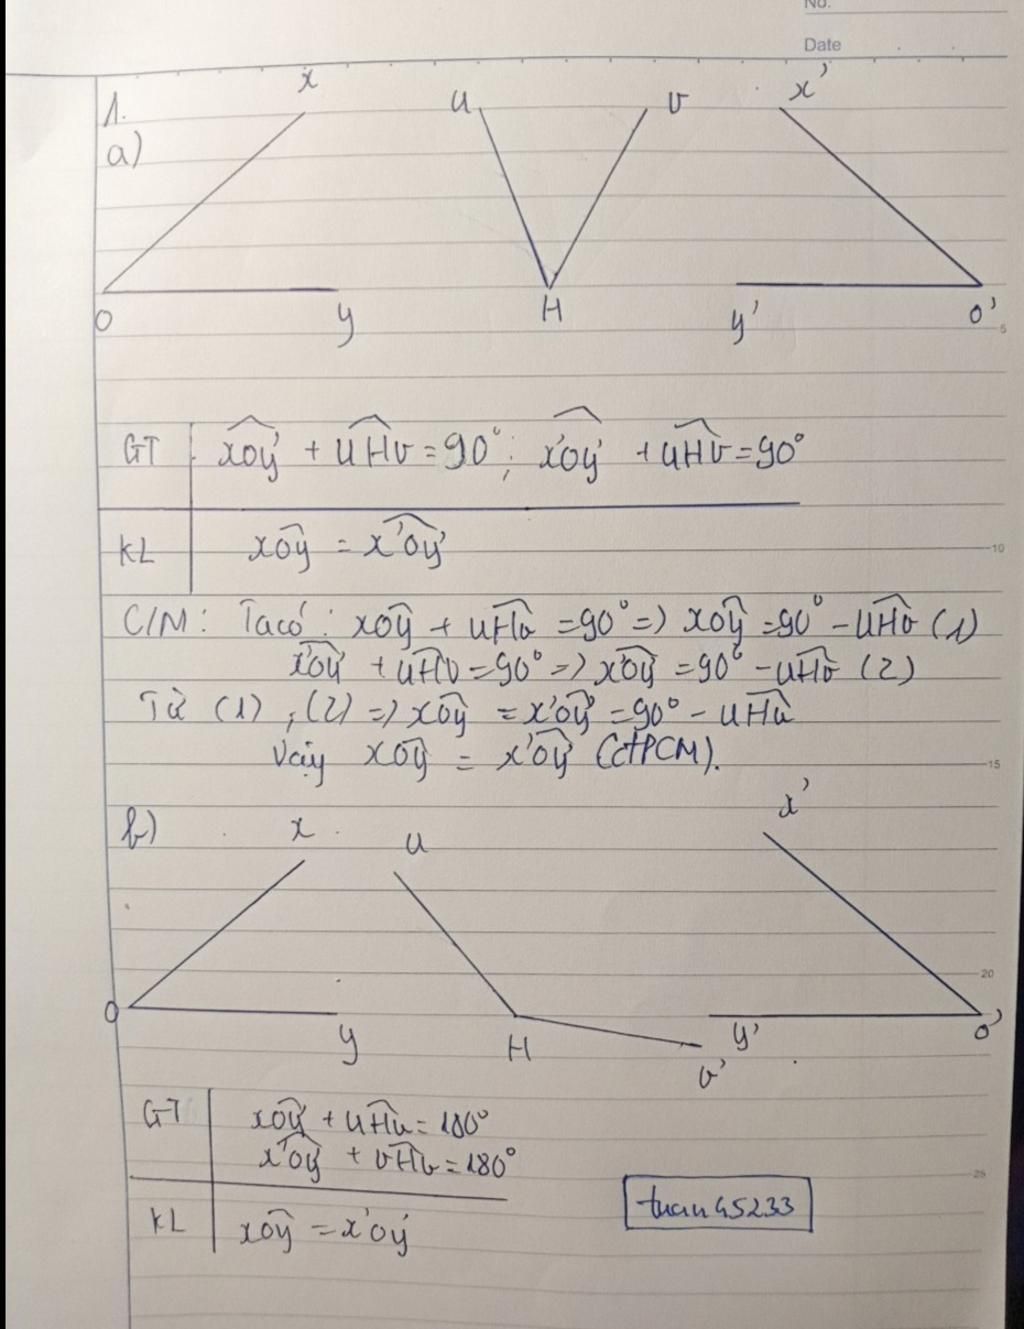 No.
Date
1.
a)
x
u
v
x'
O
y
H
y'
O'
5
GT xOy + uHv = 90°; x'Oy' + uHv = 90°
KL xOy = x'Oy'
10
C/M: Ta có: xOy + uHv = 90° => xOy = 90° - uHv (1)
x'Oy' + uHv = 90° => x'Oy' = 90° - uHv (2)
Từ (1), (2) => xOy = x'Oy' = 90° - uHv
Vậy xOy = x'Oy' (đPCM).
15
b)
x
u
x'
20
O
y
H
v'
y'
O'
GT xOy + uHv = 180°
x'Oy' + vHv = 180°
25
KL xOy = x'Oy'
tuan45233